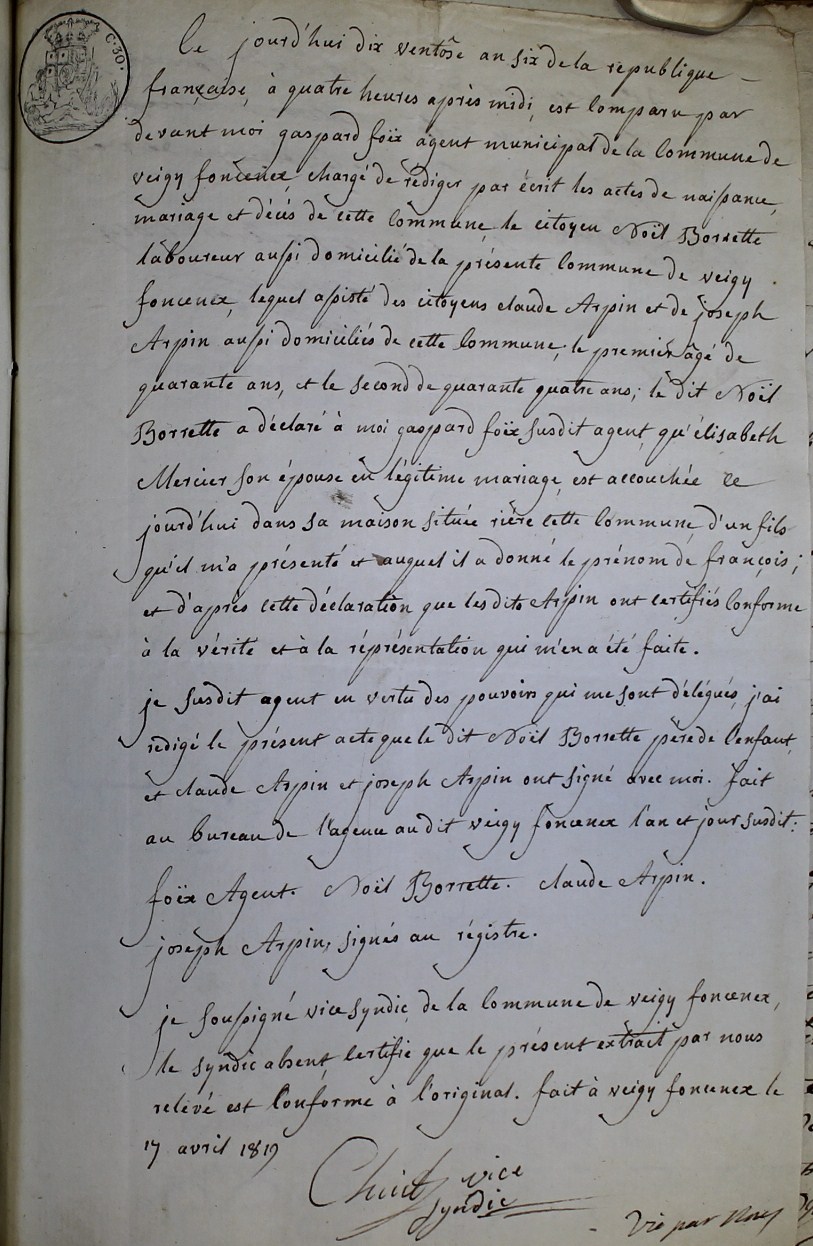 C. 30.
Ce jourd'hui dix ventôse an six de la republique
française, à quatre heures après midi, est Comparu par
devant moi gaspard foëx agent municipal de la Commune de
veigy foncenex, chargé de rédiger par écrit les actes de naissance,
mariage et décès de cette Commune, le citoyen Noël Borrette
laboureur aussi Domicilié de la présente Commune de veigy
foncenex, lequel assisté des citoyens claude Arpin et de joseph
Arpin aussi domiciliés de cette Commune, le premier âgé de
quarante ans, et le second de quarante quatre ans; le dit Noël
Borrette a déclaré à moi gaspard foëx susdit agent, qu'élisabeth
Mercier son épouse en légitime mariage, est accouchée ce
jourd'hui dans sa maison située rière cette Commune, d'un fils
qu'il m'a présenté et auquel il a donné le prénom de françois;
et d'après cette déclaration que lesdits Arpin ont certifiés Conforme
à la vérité et à la réprésentation qui m'en a été faite.
je susdit agent en vertu des pouvoirs qui me sont délégués, j'ai
redigé le présent acte que le dit Noël Borrette père de l'enfant,
et claude Arpin et joseph Arpin ont signé avec moi. fait
au bureau de l'agence audit veigy foncenex l'an et jour susdit:
foëx Agent. Noël Borrette. claude Arpin.
joseph Arpin, signés au régistre.
je soussigné vice syndic de la Commune de veigy foncenex,
le syndic absent, Certifie que le présent extrait par nous
relevé est Conforme à l'original. fait à veigy foncenex le
17 avril 1819
vice
syndic
Vû par Nous